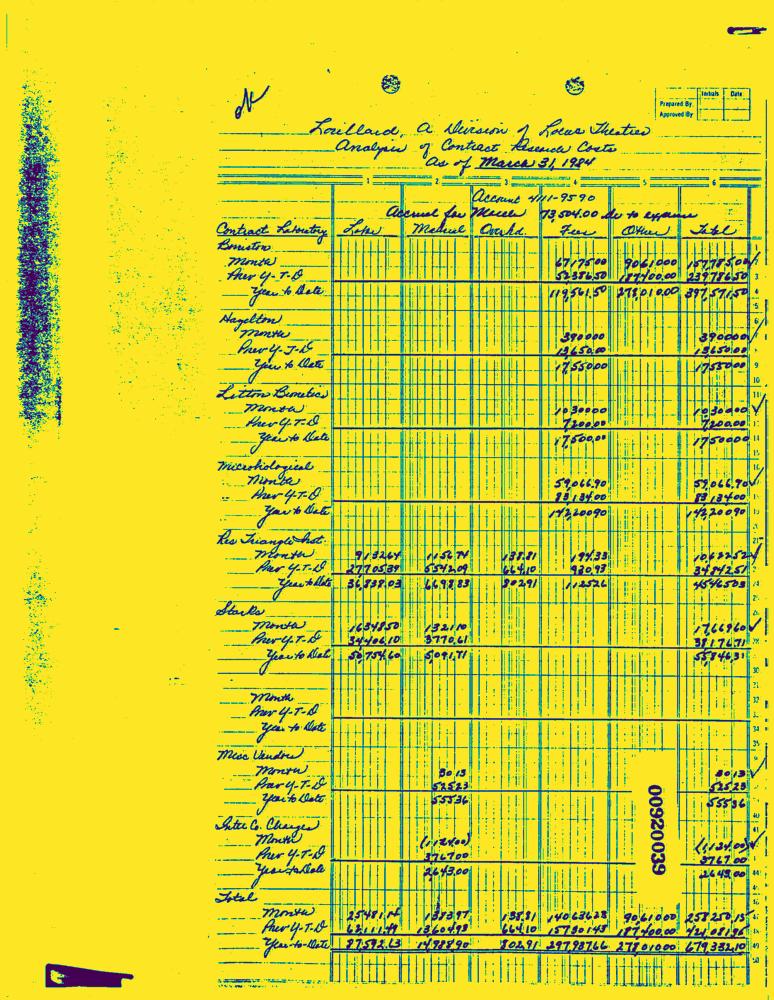 Initials Date
Prepared By
Approved By
Lorillard, A Division of Loews Theatres
Analysis of Contract Research Costs
As of March 31, 1984
1 2 3 4 5 6
Account 4111-9590
Accrual for March 73,504.00 dr to expense
Contract Laboratory Labor Material Ovrhd. Fees Other Total
Month 67175.00 90610.00 157,785.00
Prev Y-T-D 52386.50 187400.00 239786.50
Year to Date 119,561.50 278,010.00 397,571.50
Hazelton
Month 3900.00 3900.00
Prev Y-T-D 13650.00 13650.00
Year to Date 17,550.00 17550.00
Litton Bionetics
Month 10,300.00 10,300.00
Prev Y-T-D 7,200.00 7,200.00
Year to Date 17,500.00 17500.00
Microbiological
Month 59,066.90 59,066.90
Prev Y-T-D 83,134.00 83,134.00
Year to Date 142,200.90 142,200.90
Res Triangle Inst.
Month 9132.64 1156.74 138.81 194.33 10,622.52
Prev Y-T-D 27705.39 5542.09 664.10 930.93 34842.51
Year to Date 36,838.03 6698.83 802.91 1125.26 45465.03
Starks
Month 16348.50 1321.10 17,669.60
Prev Y-T-D 34406.10 3770.61 38176.71
Year to Date 50,754.60 5,091.71 55846.31
Month
Prev Y-T-D
Year to Date
Misc Vendors
Month 30.13 30.13
Prev Y-T-D 525.23 525.23
Year to Date 555.36 555.36
Inter Co. Charges
Month (1,124.00) (1,124.00)
Prev Y-T-D 3767.00 3767.00
Year to Date 2643.00 2643.00
Total
Month 25481.14 1383.97 138.81 140636.23 90,610.00 258250.15
Prev Y-T-D 62,111.49 13604.93 664.10 157301.43 187400.00 421,081.95
Year-to-Date 87592.63 14988.90 802.91 297937.66 278010.00 679,332.10
00920039